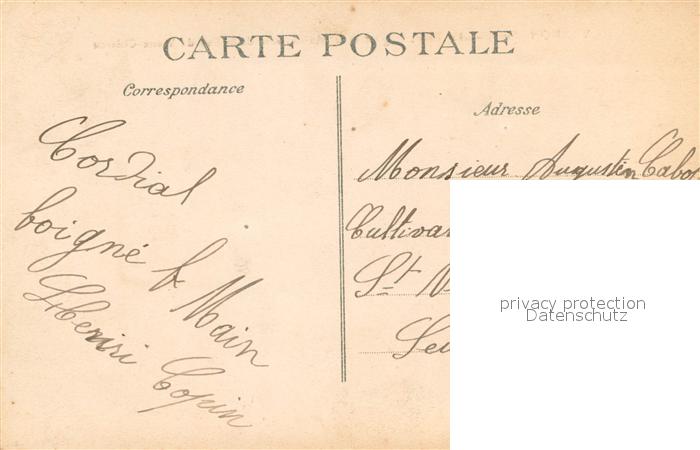 CARTE POSTALE
Correspondance
Cordial
Poigné de Main
Henri Copin
Adresse
Monsieur Augustin
St
privacy protection
Datenschutz